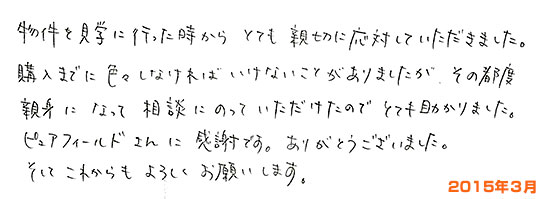 物件を見学に行った時から とても 親切に応対していただきました。
購入までに色々しなければいけないことがありましたが、その都度
親身になって 相談にのっていただけたので とても助かりました。
ピュアフィールドさんに 感謝です。ありがとうございました。
そして これからも よろしく お願いします。
2015年3月